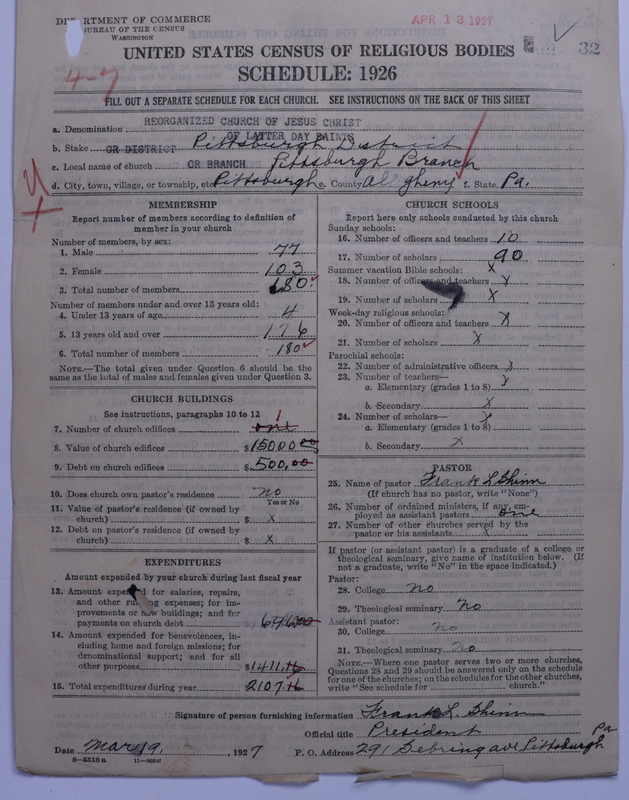 DEPARTMENT OF COMMERCE
BUREAU OF THE CENSUS
WASHINGTON
APR 13 1927
32
UNITED STATES CENSUS OF RELIGIOUS BODIES
4-7
SCHEDULE: 1926
FILL OUT A SEPARATE SCHEDULE FOR EACH CHURCH. SEE INSTRUCTIONS ON THE BACK OF THIS SHEET
REORGANIZED CHURCH OF JESUS CHRIST
a. Denomination
OF LATTER DAY SAINTS
b. Stake OR DISTRICT Pittsburgh District
c. Local name of church OR BRANCH Pittsburgh Branch
d. City, town, village, or township, etc. Pittsburgh e. County Al gheny f. State Pa.
MEMBERSHIP
Report number of members according to definition of
member in your church
Number of members, by sex:
1. Male 77
2. Female 103
3. Total number of members 180
Number of members under and over 13 years old:
4. Under 13 years of age 4
5. 13 years old and over 176
6. Total number of members 180
NOTE.—The total given under Question 6 should be
same as the total of males and females given under Question 3.
CHURCH BUILDINGS
See instructions, paragraphs 10 to 12
1
7. Number of church edifices one
8. Value of church edifices $15000.00
9. Debt on church edifices $500.00
10. Does church own pastor's residence no
Yes or No
11. Value of pastor's residence (if owned by
church) $ X
12. Debt on pastor's residence (if owned by
church) $ X
EXPENDITURES
Amount expended by your church during last fiscal year
13. Amount expended for salaries, repairs,
and other running expenses; for im-
provements or new buildings; and for
payments on church debt 696.00
14. Amount expended for benevolences, in-
cluding home and foreign missions; for
denominational support; and for all
other purposes $1411.16
15. Total expenditures during year 2107.16
CHURCH SCHOOLS
Report here only schools conducted by this church
Sunday schools:
16. Number of officers and teachers 10
17. Number of scholars 90
Summer vacation Bible schools: X
18. Number of officers and teachers X
19. Number of scholars X
Week-day religious schools:
20. Number of officers and teachers X
21. Number of scholars X
Parochial schools:
22. Number of administrative officers X
23. Number of teachers—
a. Elementary (grades 1 to 8) X
b. Secondary X
24. Number of scholars— X
a. Elementary (grades 1 to 8)
b. Secondary X
PASTOR
25. Name of pastor Frank L Shinn
(If church has no pastor, write "None")
26. Number of ordained ministers, if any, em-
ployed as assistant pastors one
27. Number of other churches served by the
pastor or his assistants
If pastor (or assistant pastor) is a graduate of a college or
theological seminary, give name of institution below. (If
not a graduate, write "No" in the space indicated.)
Pastor:
28. College No
29. Theological seminary No
Assistant pastor:
30. College No
31. Theological seminary No
NOTE.—Where one pastor serves two or more churches,
Questions 28 and 29 should be answered only on the schedule
for one of the churches; on the schedules for the other churches,
write "See schedule for church."
Signature of person furnishing information Frank L. Shinn
Official title President
Date Mar 19, 1927 P. O. Address 291 Sebring ave Pittsburgh Pa
8—5518a